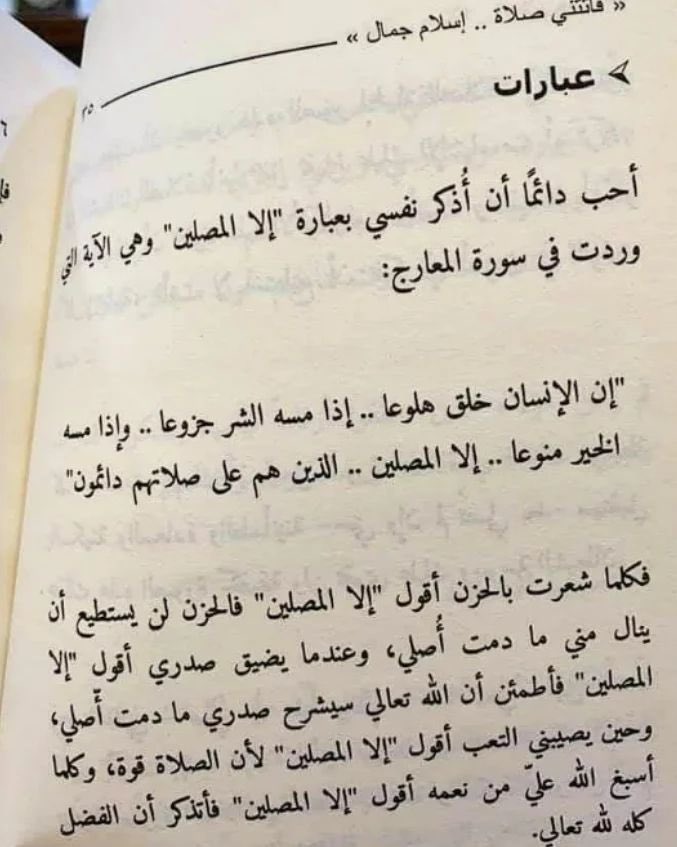 « فاتتني صلاة .. إسلام جمال »
٣٥
عبارات
أحب دائمًا أن أُذكر نفسي بعبارة "إلا المصلين" وهي الآية التي
وردت في سورة المعارج:
"إن الإنسان خلق هلوعا .. إذا مسه الشر جزوعا .. وإذا مسه
الخير منوعا .. إلا المصلين .. الذين هم على صلاتهم دائمون"
فكلما شعرت بالحزن أقول "إلا المصلين" فالحزن لن يستطيع أن
ينال مني ما دمت أُصلي، وعندما يضيق صدري أقول "إلا
المصلين" فأطمئن أن الله تعالي سيشرح صدري ما دمت أّصلي،
وحين يصيبني التعب أقول "إلا المصلين" لأن الصلاة قوة، وكلما
أسبغ الله عليّ من نعمه أقول "إلا المصلين" فأتذكر أن الفضل
كله لله تعالي.